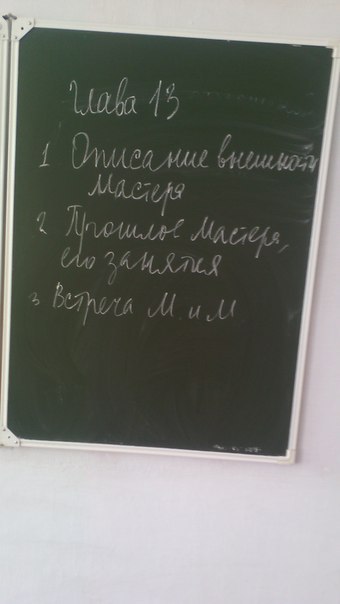 Глава 13
1 Описание внешности
Мастера
2 Прошлое Мастера,
его занятия
3 Встреча М. и М.